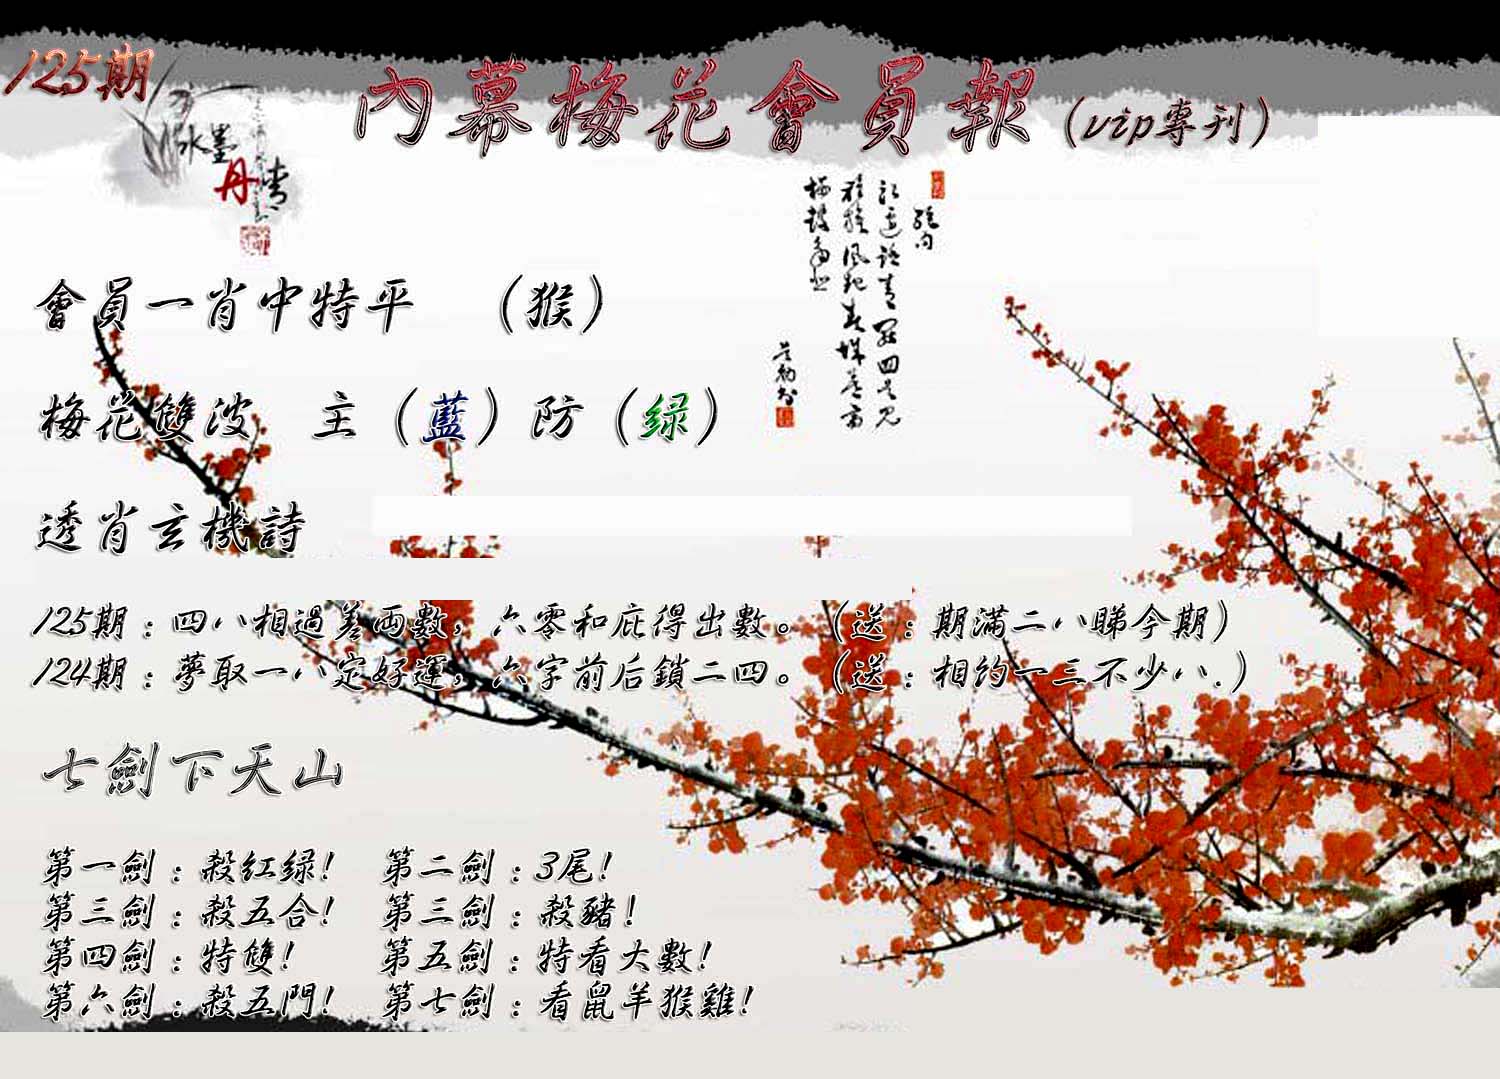 125期
內幕梅花會員報（vip專刊）
水墨
丹青
會員一肖中特平 （猴）
梅花雙波 主（藍）防（绿）
透肖玄機詩
125期：四八相過差両數，六零和庇得出數。（送：期滿二八睇今期）
124期：夢取一八定好運，六字前后鎖二四。（送：相約一三不少八.）
七劍下天山
第一劍：殺紅绿！ 第二劍：3尾！
第三劍：殺五合！ 第三劍：殺豬！
第四劍：特雙！ 第五劍：特看大數！
第六劍：殺五門！ 第七劍：看鼠羊猴雞！